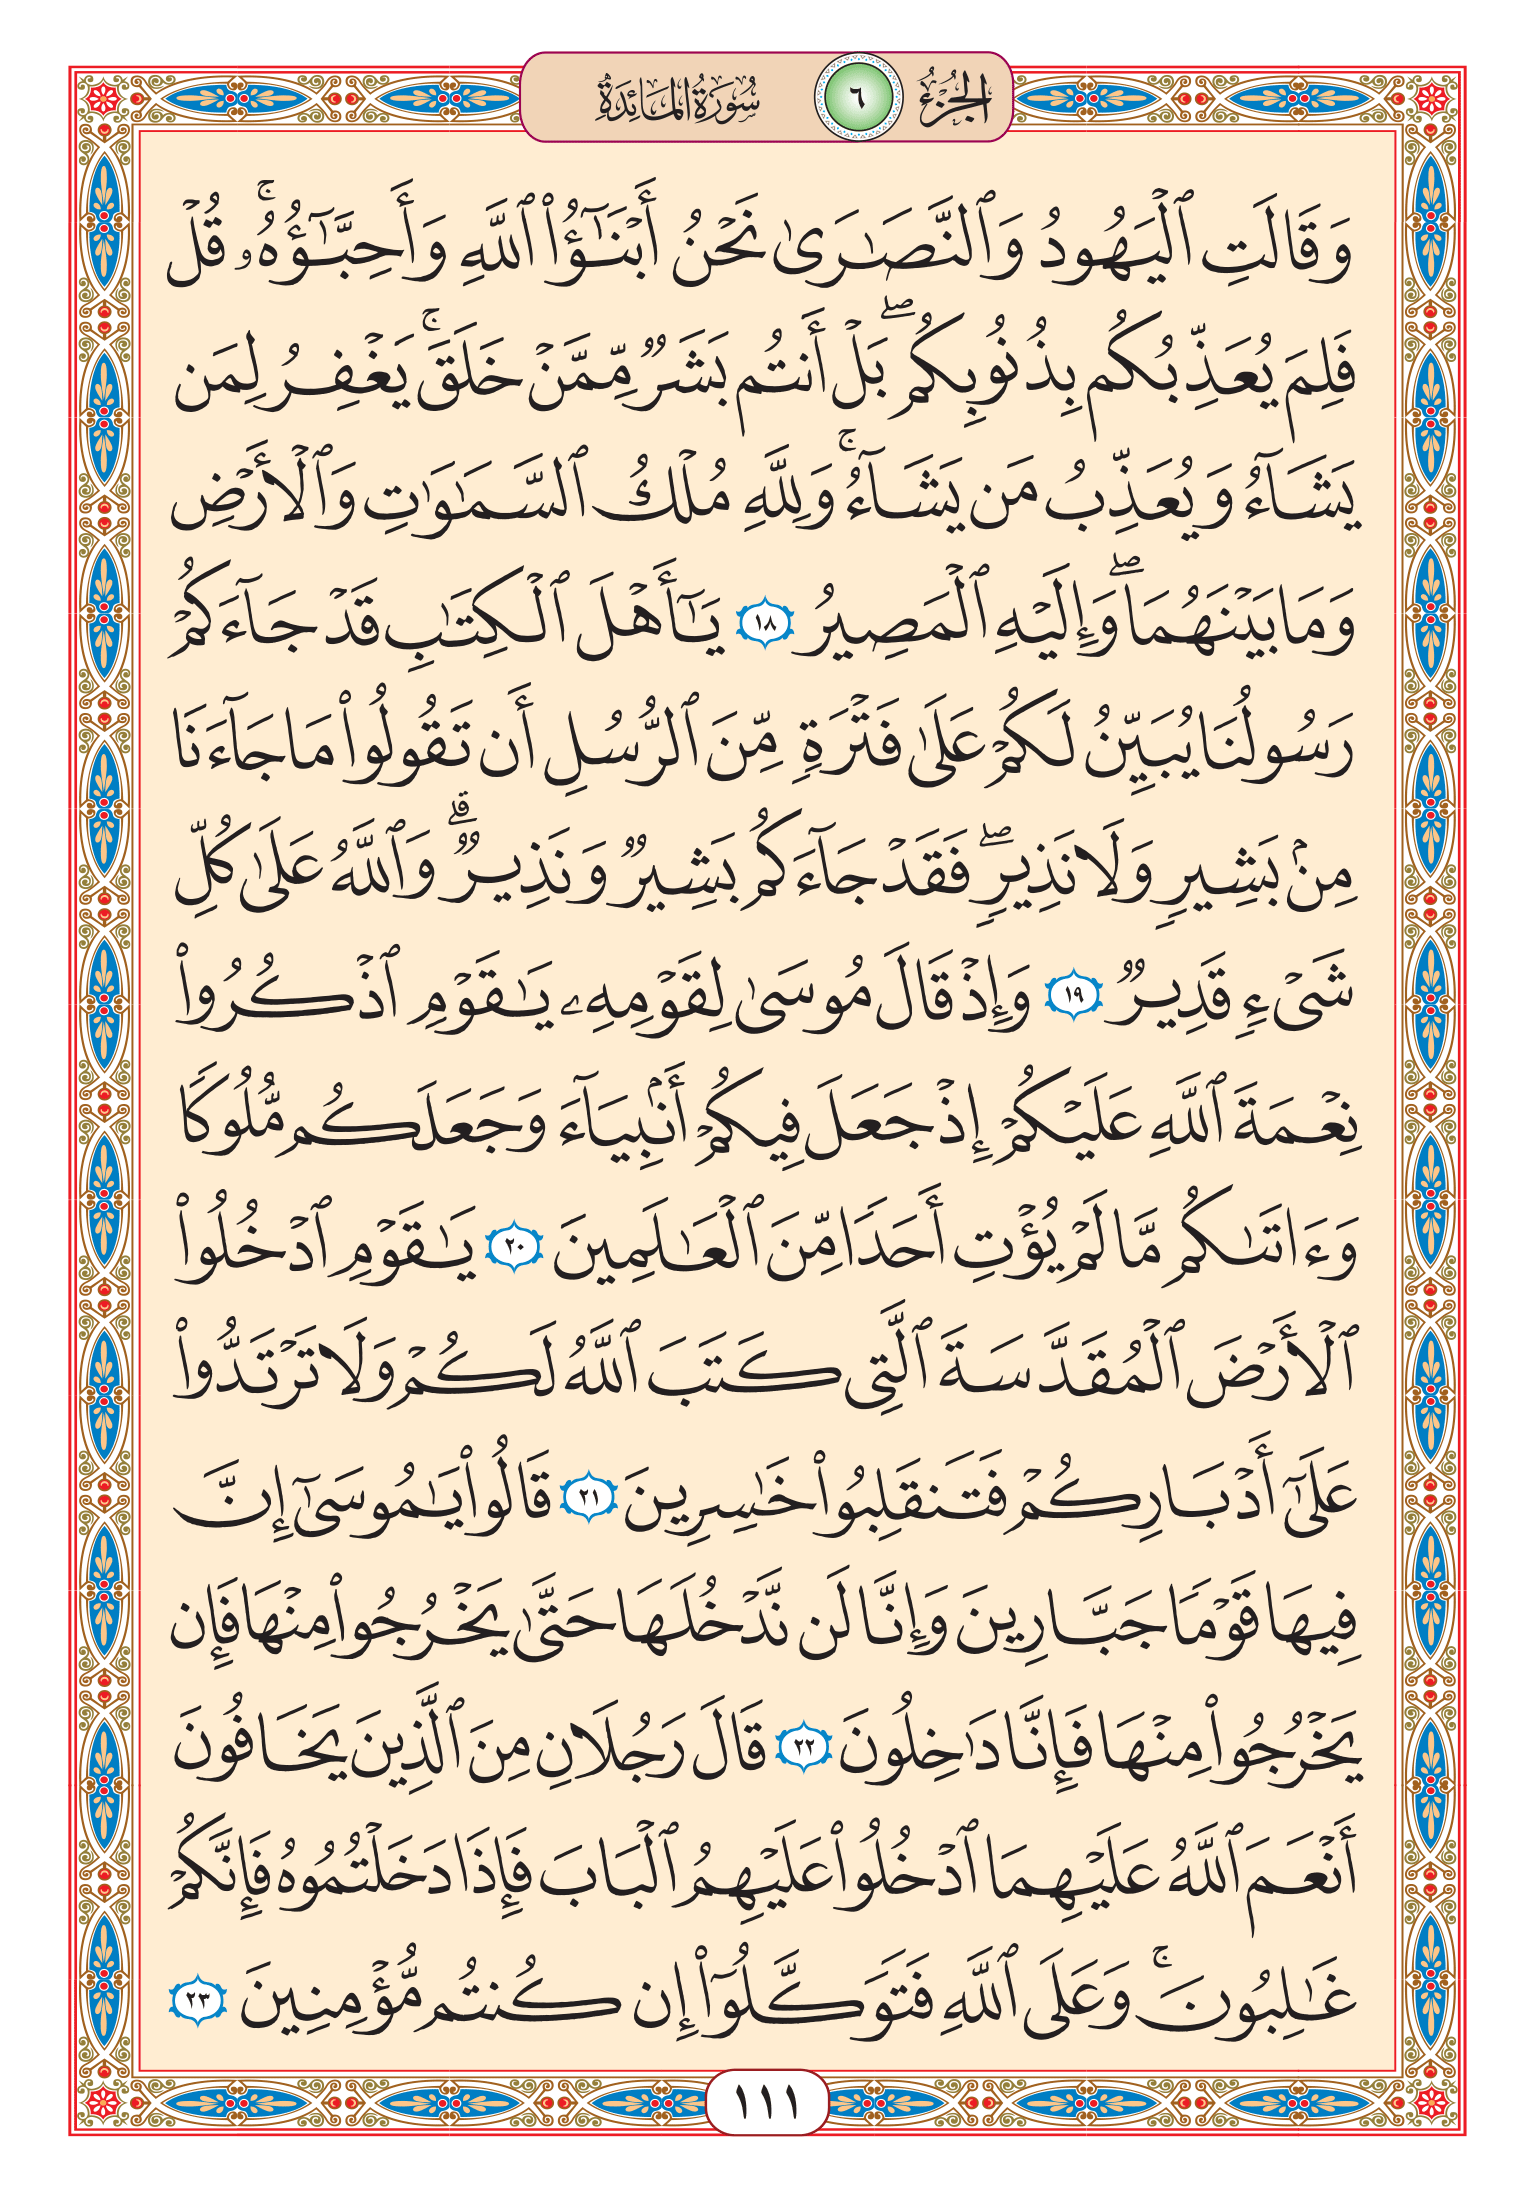 الجزء ٦ سورة المائدة
وَقَالَتِ ٱلْيَهُودُ وَٱلنَّصَٰرَىٰ نَحْنُ أَبْنَٰٓؤُا۟ ٱللَّهِ وَأَحِبَّٰٓؤُهُۥ ۚ قُلْ
فَلِمَ يُعَذِّبُكُم بِذُنُوبِكُم ۖ بَلْ أَنتُم بَشَرٌ مِّمَّنْ خَلَقَ ۚ يَغْفِرُ لِمَن
يَشَآءُ وَيُعَذِّبُ مَن يَشَآءُ ۚ وَلِلَّهِ مُلْكُ ٱلسَّمَٰوَٰتِ وَٱلْأَرْضِ
وَمَا بَيْنَهُمَا ۖ وَإِلَيْهِ ٱلْمَصِيرُ ١٨ يَٰٓأَهْلَ ٱلْكِتَٰبِ قَدْ جَآءَكُمْ
رَسُولُنَا يُبَيِّنُ لَكُمْ عَلَىٰ فَتْرَةٍ مِّنَ ٱلرُّسُلِ أَن تَقُولُوا۟ مَا جَآءَنَا
مِنۢ بَشِيرٍ وَلَا نَذِيرٍ ۖ فَقَدْ جَآءَكُم بَشِيرٌ وَنَذِيرٌ ۗ وَٱللَّهُ عَلَىٰ كُلِّ
شَىْءٍ قَدِيرٌ ١٩ وَإِذْ قَالَ مُوسَىٰ لِقَوْمِهِۦ يَٰقَوْمِ ٱذْكُرُوا۟
نِعْمَةَ ٱللَّهِ عَلَيْكُمْ إِذْ جَعَلَ فِيكُمْ أَنۢبِيَآءَ وَجَعَلَكُم مُّلُوكًا
وَءَاتَىٰكُم مَّا لَمْ يُؤْتِ أَحَدًا مِّنَ ٱلْعَٰلَمِينَ ٢٠ يَٰقَوْمِ ٱدْخُلُوا۟
ٱلْأَرْضَ ٱلْمُقَدَّسَةَ ٱلَّتِى كَتَبَ ٱللَّهُ لَكُمْ وَلَا تَرْتَدُّوا۟
عَلَىٰٓ أَدْبَارِكُمْ فَتَنقَلِبُوا۟ خَٰسِرِينَ ٢١ قَالُوا۟ يَٰمُوسَىٰٓ إِنَّ
فِيهَا قَوْمًا جَبَّارِينَ وَإِنَّا لَن نَّدْخُلَهَا حَتَّىٰ يَخْرُجُوا۟ مِنْهَا فَإِن
يَخْرُجُوا۟ مِنْهَا فَإِنَّا دَٰخِلُونَ ٢٢ قَالَ رَجُلَانِ مِنَ ٱلَّذِينَ يَخَافُونَ
أَنْعَمَ ٱللَّهُ عَلَيْهِمَا ٱدْخُلُوا۟ عَلَيْهِمُ ٱلْبَابَ فَإِذَا دَخَلْتُمُوهُ فَإِنَّكُمْ
غَٰلِبُونَ ۚ وَعَلَى ٱللَّهِ فَتَوَكَّلُوٓا۟ إِن كُنتُم مُّؤْمِنِينَ ٢٣
١١١